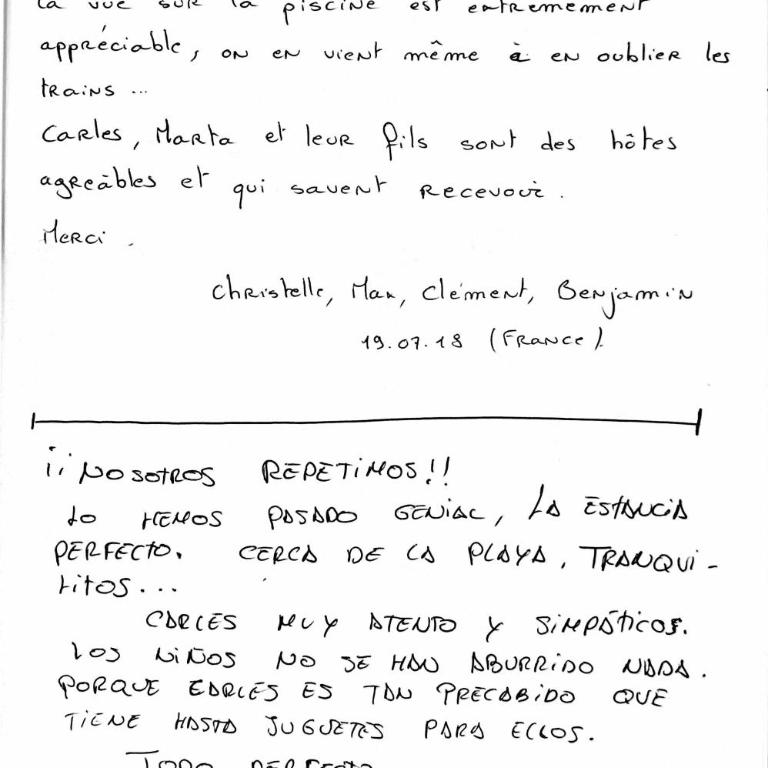 la vue sur la piscine est extrêmement
appréciable, on en vient même à en oublier les
trains ...
Carles, Marta et leur fils sont des hôtes
agreâbles et qui savent recevoir.
Merci.
Christelle, Max, Clément, Benjamin
19.07.18 (France).
¡¡NOSOTROS REPETIMOS!!
LO HEMOS PASADO GENIAL, LA ESTANCIA
PERFECTO. CERCA DE LA PLAYA, TRANQUI-
LITOS...
CARLES MUY ATENTO Y SIMPÁTICOS.
LOS NIÑOS NO SE HAN ABURRIDO NADA.
PORQUE CARLES ES TAN PRECABIDO QUE
TIENE HASTA JUGUETES PARA ELLOS.
TODO PERFECTO